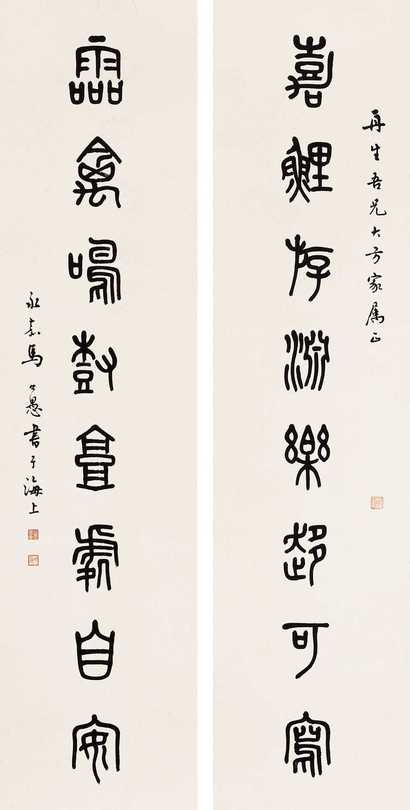 再生吾兄大方家属正
嘉鯉斿淵樂可寫
靈禽鳴樹處自安
永嘉馬公愚書于海上